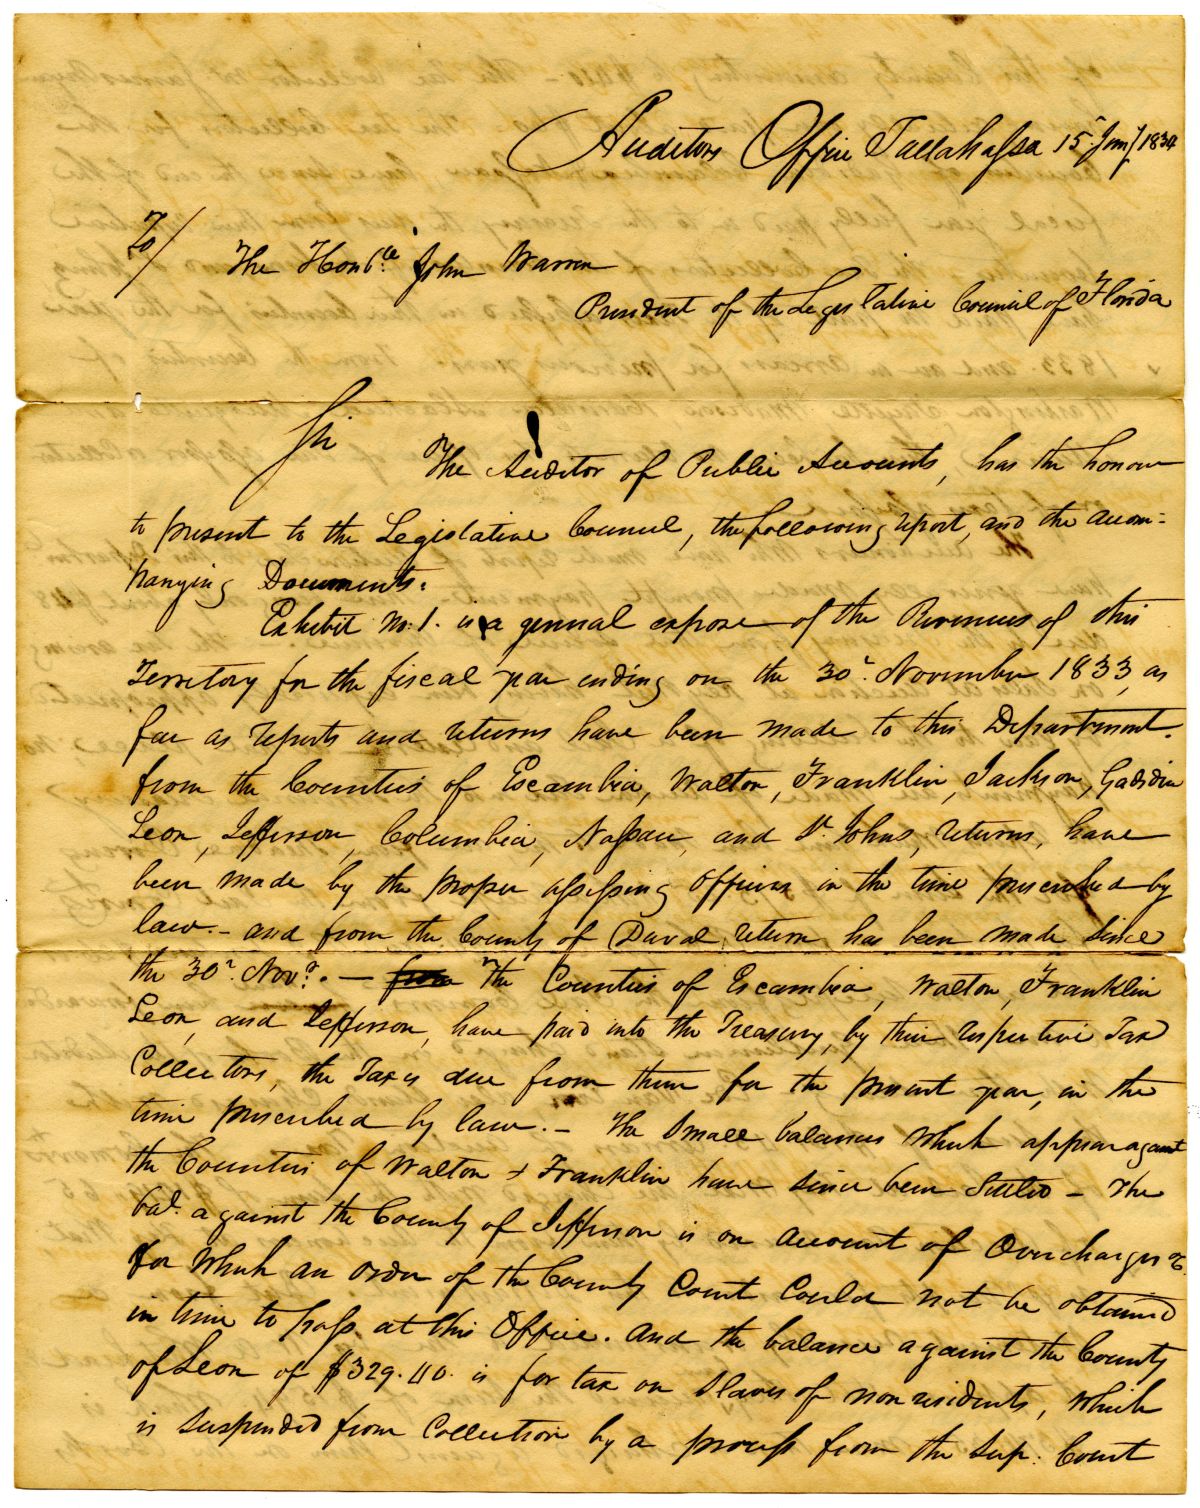 Auditors Office Tallahassa 15th Jany 1834
To/
The Honble John Warren
President of the Legislative Council of Florida
Sir
The Auditor of Public Accounts, has the honour
to present to the Legislative Council, the following report, and the accom=
panying Documents.
Exhibit No. 1. is a general expose of the Revenues of this
Territory for the fiscal year ending on the 30th November 1833, as
far as reports and returns have been made to this Department.
from the Counties of Escambia, Walton, Franklin, Jackson, Gadsden
Leon, Jefferson, Columbia, Nassau, and St. Johns, returns, have
been made by the proper assessing officers in the time prescribed by
law. – and from the County of Duval, return has been made since
the 30th Novr. – from The Counties of Escambia, Walton, Franklin
Leon, and Jefferson, have paid into the Treasury, by their respective Tax
Collectors, the Taxes due from them for the present year, in the
time prescribed by law. – The small balances which appear against
the Counties of Walton & Franklin have since been Settled – The
bal. against the County of Jefferson is on account of Overcharges &c.
for which an order of the County Court could not be obtained
in time to pass at this Office. And the balance against the County
of Leon of $329.40. is for tax on slaves of non residents, which
is suspended from Collection by a process from the Sup. Court